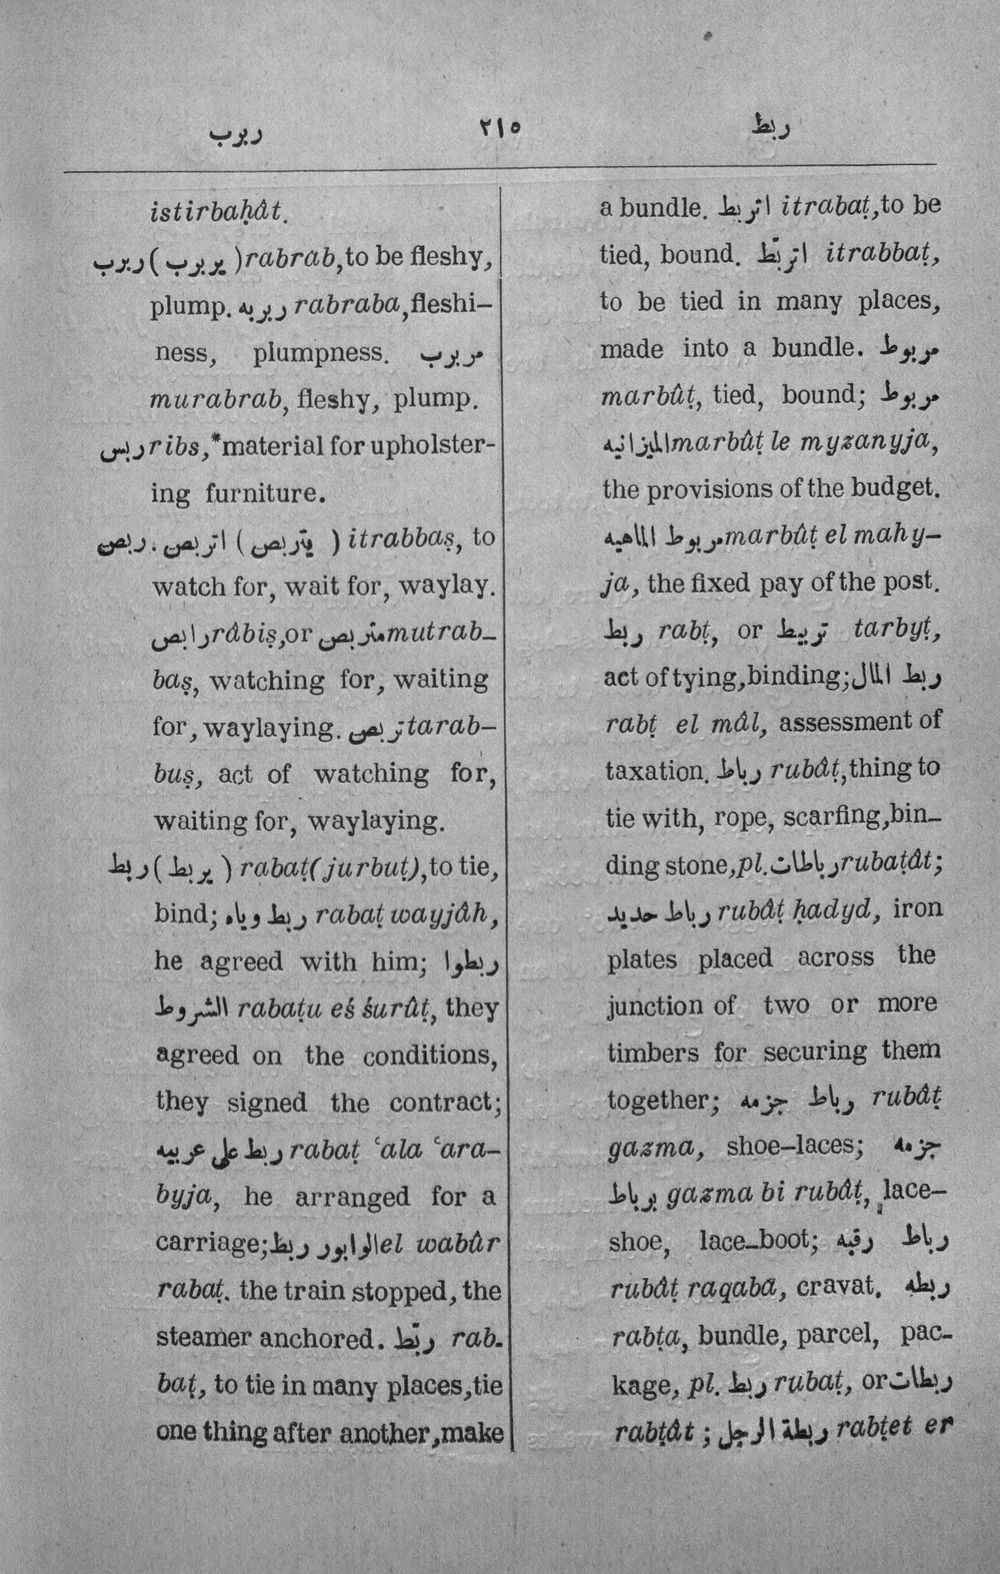 ربرب ٢١٥ ربط
istirbaḥât.
ربرب (يربرب) rabrab, to be fleshy,
plump. ربربه rabraba, fleshi-
ness, plumpness. مربرب
murabrab, fleshy, plump.
ربس ribs,*material for upholster-
ing furniture.
ربص. اتربص (يتربص) itrabbaṣ, to
watch for, wait for, waylay.
رابص râbiṣ, or متربص mutrab-
baṣ, watching for, waiting
for, waylaying. تربص tarab-
buṣ, act of watching for,
waiting for, waylaying.
ربط (يربط) rabaṭ (jurbuṭ), to tie,
bind; ربط وياه rabaṭ wayjâh,
he agreed with him; ربطوا
الشروط rabaṭu eś śurûṭ, they
agreed on the conditions,
they signed the contract;
ربط على عربيه rabaṭ ʿala ʿara-
byja, he arranged for a
carriage; الوابور ربط el wabûr
rabaṭ. the train stopped, the
steamer anchored. ربّط rab-
baṭ, to tie in many places, tie
one thing after another, make
a bundle. اتربط itrabaṭ, to be
tied, bound. اتربّط itrabbaṭ,
to be tied in many places,
made into a bundle. مربوط
marbûṭ, tied, bound; مربوط
الميزانيه marbûṭ le myzanyja,
the provisions of the budget.
مربوط الماهيه marbûṭ el mahy-
ja, the fixed pay of the post.
ربط rabṭ, or تربيط tarbyṭ,
act of tying, binding; ربط المال
rabṭ el mâl, assessment of
taxation. رباط rubâṭ, thing to
tie with, rope, scarfing, bin-
ding stone, pl. رباطات rubaṭât;
رباط حديد rubâṭ ḥadyd, iron
plates placed across the
junction of two or more
timbers for securing them
together; رباط جزمه rubâṭ
gazma, shoe-laces; جزمه
برباط gazma bi rubâṭ, lace-
shoe, lace-boot; رباط رقبه
rubâṭ raqaba, cravat. ربطه
rabṭa, bundle, parcel, pac-
kage, pl. ربط rubaṭ, or ربطات
rabṭât; ربطة الرجل rabṭet er